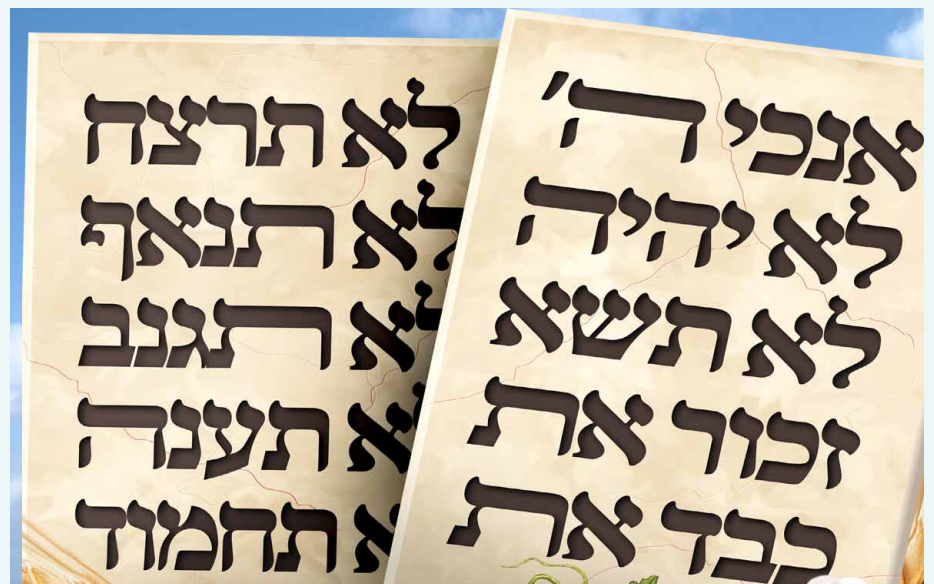 אנכי ה'
לא יהיה
לא תשא
זכור את
כבד את
לא תרצח
לא תנאף
לא תגנב
לא תענה
לא תחמוד